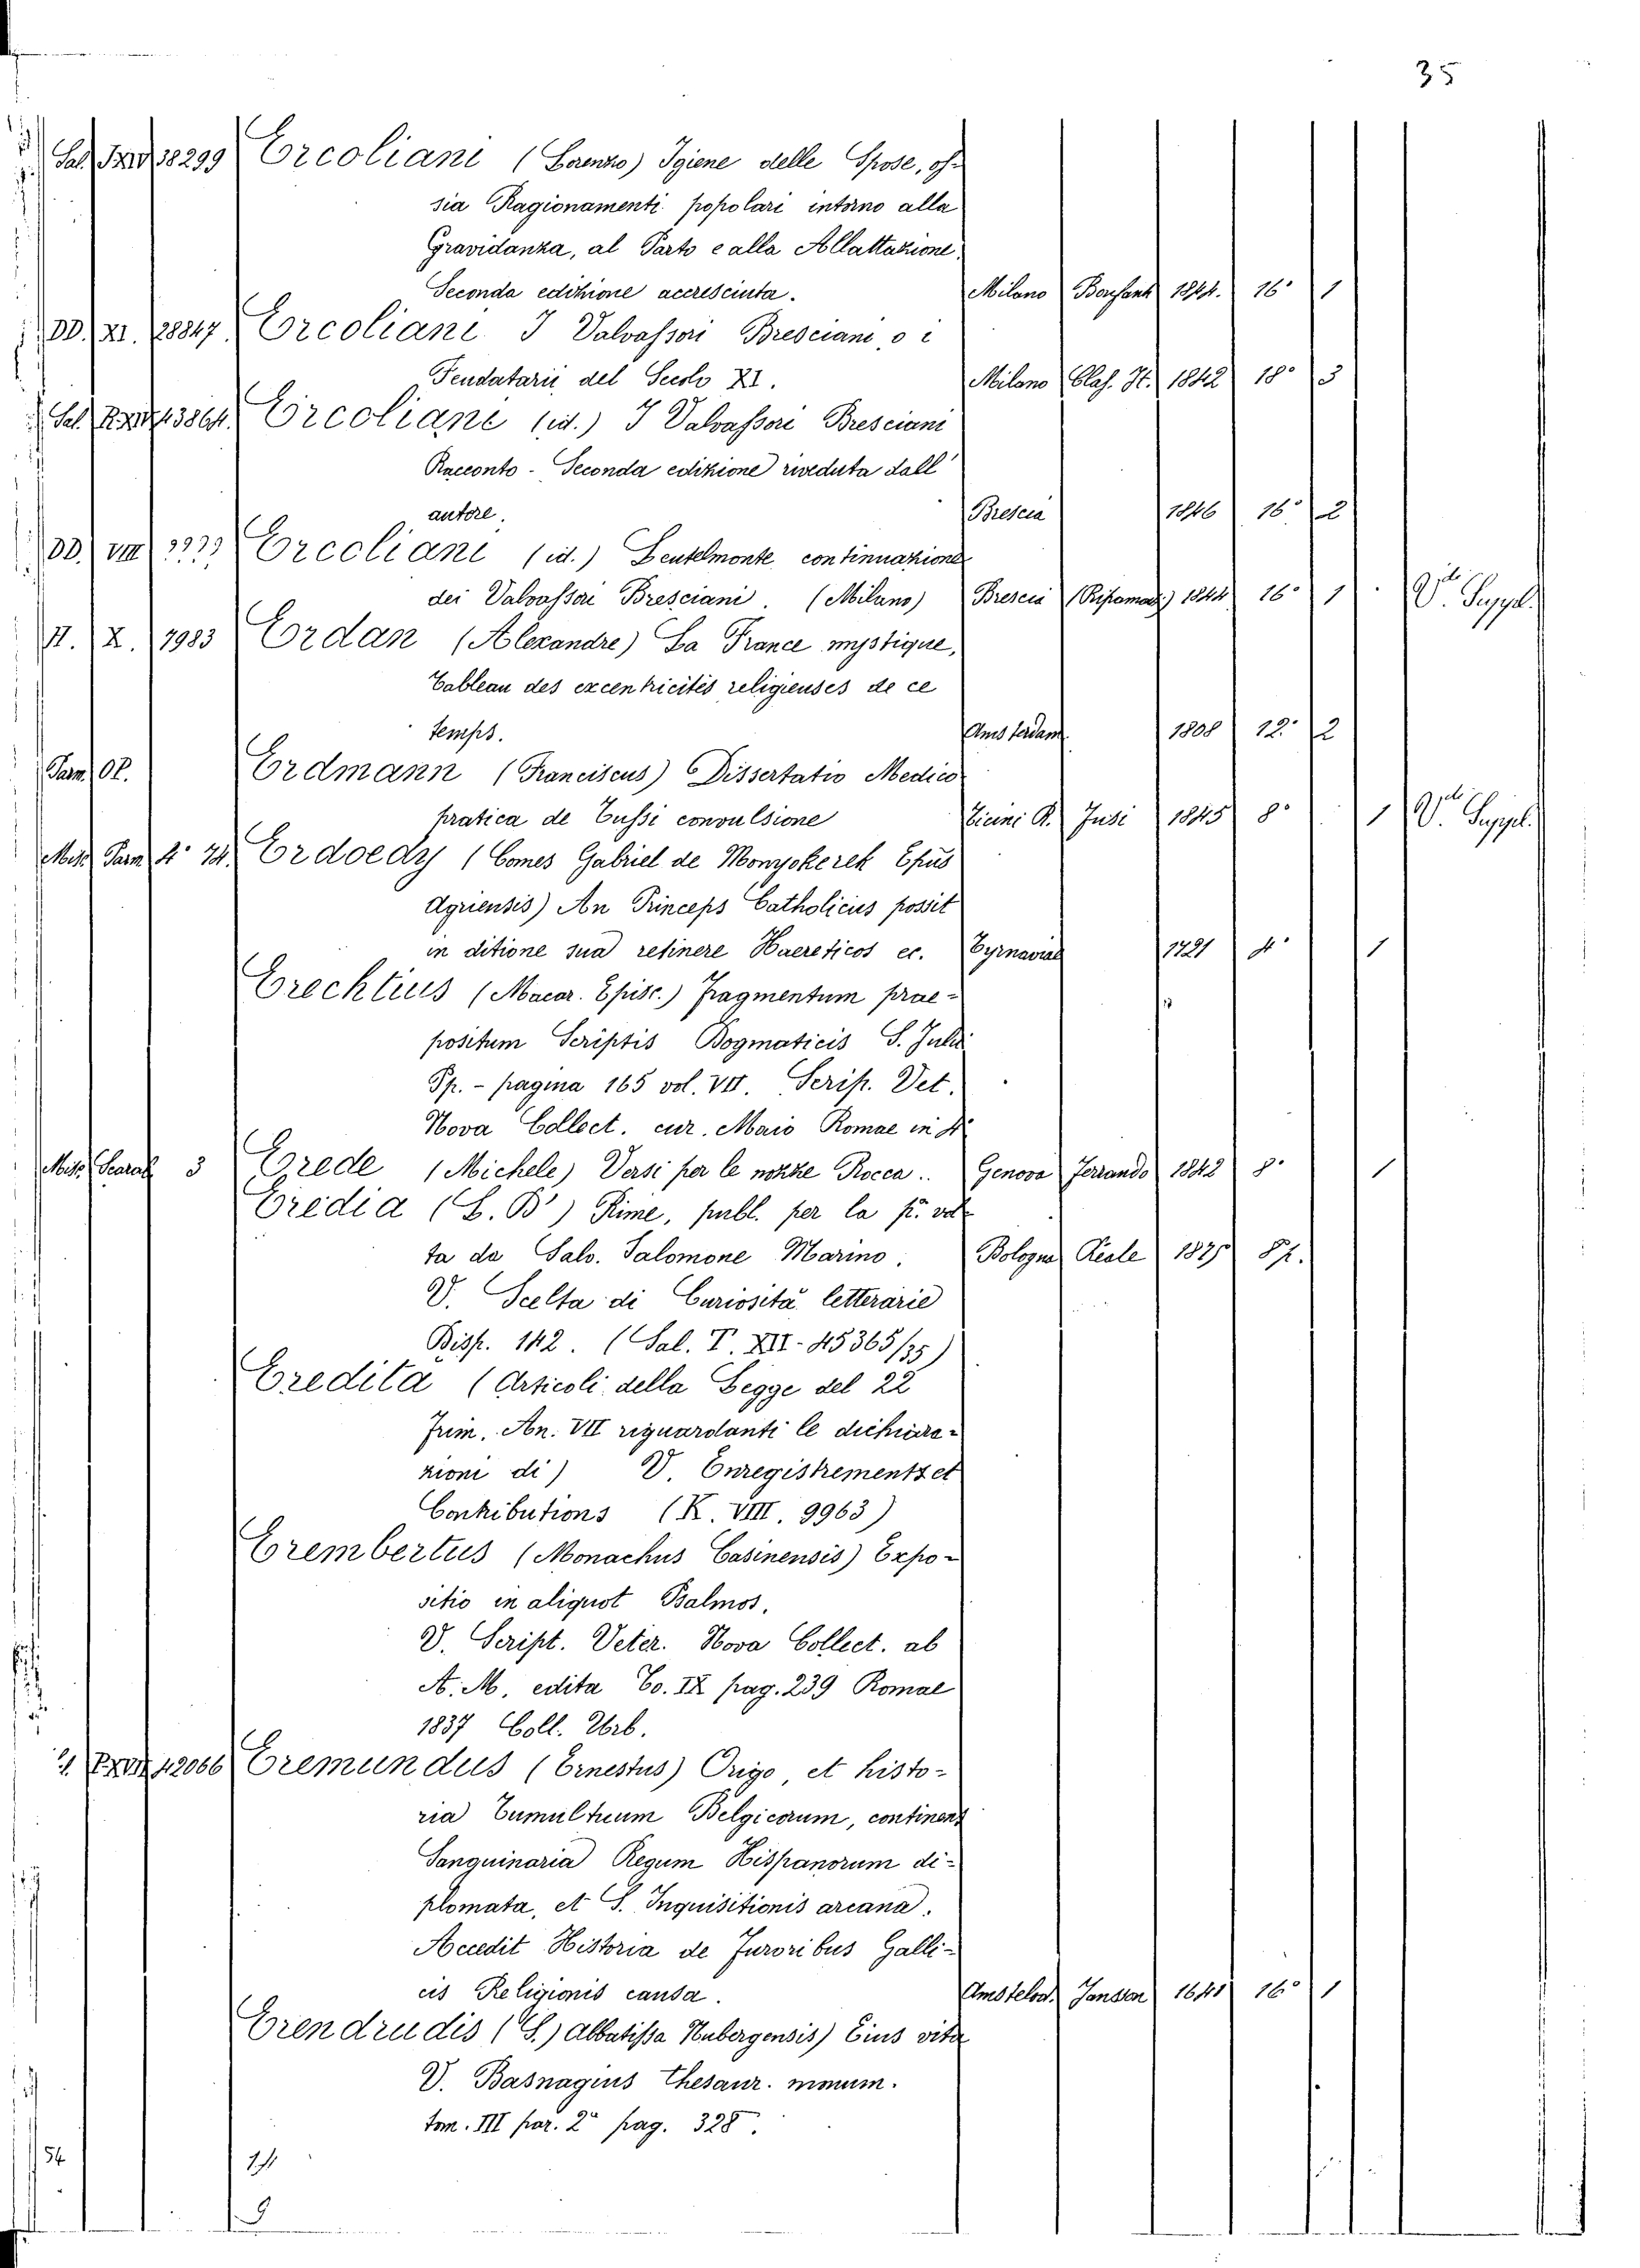 35
Sal. 38299 Ercoliani (Lorenzo) Igiene delle Spose, os-
sia Ragionamenti popolari intorno alla
Gravidanza, al Parto e alla Allattazione
Seconda edizione accresciuta. Milano Bonfanti 1844. 16° 1
DD. XI. 28847 Ercoliani I Valvassori Bresciani o i
Feudatarii del Secolo XI. Milano Clas. It. 1842 18° 3
Sal. 43864. Ercoliani (id.) I Valvassori Bresciani
Racconto - Seconda edizione riveduta dall'
autore. Brescia 1846 16° 2
DD. VIII Ercoliani (id.) Leutelmonte continuazione
dei Valvassori Bresciani. (Milano) Brescia 1844 16° 1 V. Suppl.
II. X. 7983 Erdan (Alexandre) La France mystique,
Tableau des excentricités religieuses de ce
temps. Amsterdam 1808 12° 2
Pam. Erdmann (Franciscus) Dissertatio Medico
pratica de Tussi convulsione Ticini R. Fusi 1845 8° 1 V. Suppl.
Misc. Pam. 4° 74. Erdoedy (Comes Gabriel de Monyokerek Epus
Agriensis) An Princeps Catholicus possit
in ditione sua retinere Haereticos ec. Tyrnaviae 1721 4° 1
Erechtius (Macar. Episc.) Fragmentum prae-
positum Scriptis Dogmaticis S. Julii
Pp. - pagina 165 vol. VII. Scrip. Vet.
Nova Collect. cur. Maio Romae in 4°
Misc. Scarab. 3 Erede (Michele) Versi per le nozze Rocca.. Genova Ferrando 1842 8° 1
Eredia (L. B.) Rime, publ. per la p. vol-
ta da Salv. Salomone Marino. Bologna Reale 1875 8p.
V. Scelta di Curiosità letterarie
Disp. 142. (Sal. T. XII - 45365/35)
Eredità (Articoli della Legge del 22
Frim. An. VII riguardanti le dichiara-
zioni di) V. Enregistrements et
Contributions (K. VIII. 9963)
Erembertus (Monachus Casinensis) Expo-
sitio in aliquot Psalmos.
V. Script. Veter. Nova Collect. ab
A. M. edita To. IX pag. 239 Romae
1837 Coll. Urb.
42066 Eremundus (Ernestus) Origo, et histo-
ria Tumultuum Belgicorum, continens
Sanguinaria Regum Hispanorum di-
plomata, et S. Inquisitionis arcana.
Accedit Historia de Furoribus Galli-
cis Religionis causa. Amstelod. Janssen 1641 16° 1
Erendrudis (S.) Abbatissa Nubergensis) Eius vita
V. Basnagius Thesaur. monum.
tom. III par. 2a pag. 328.
54
21
9